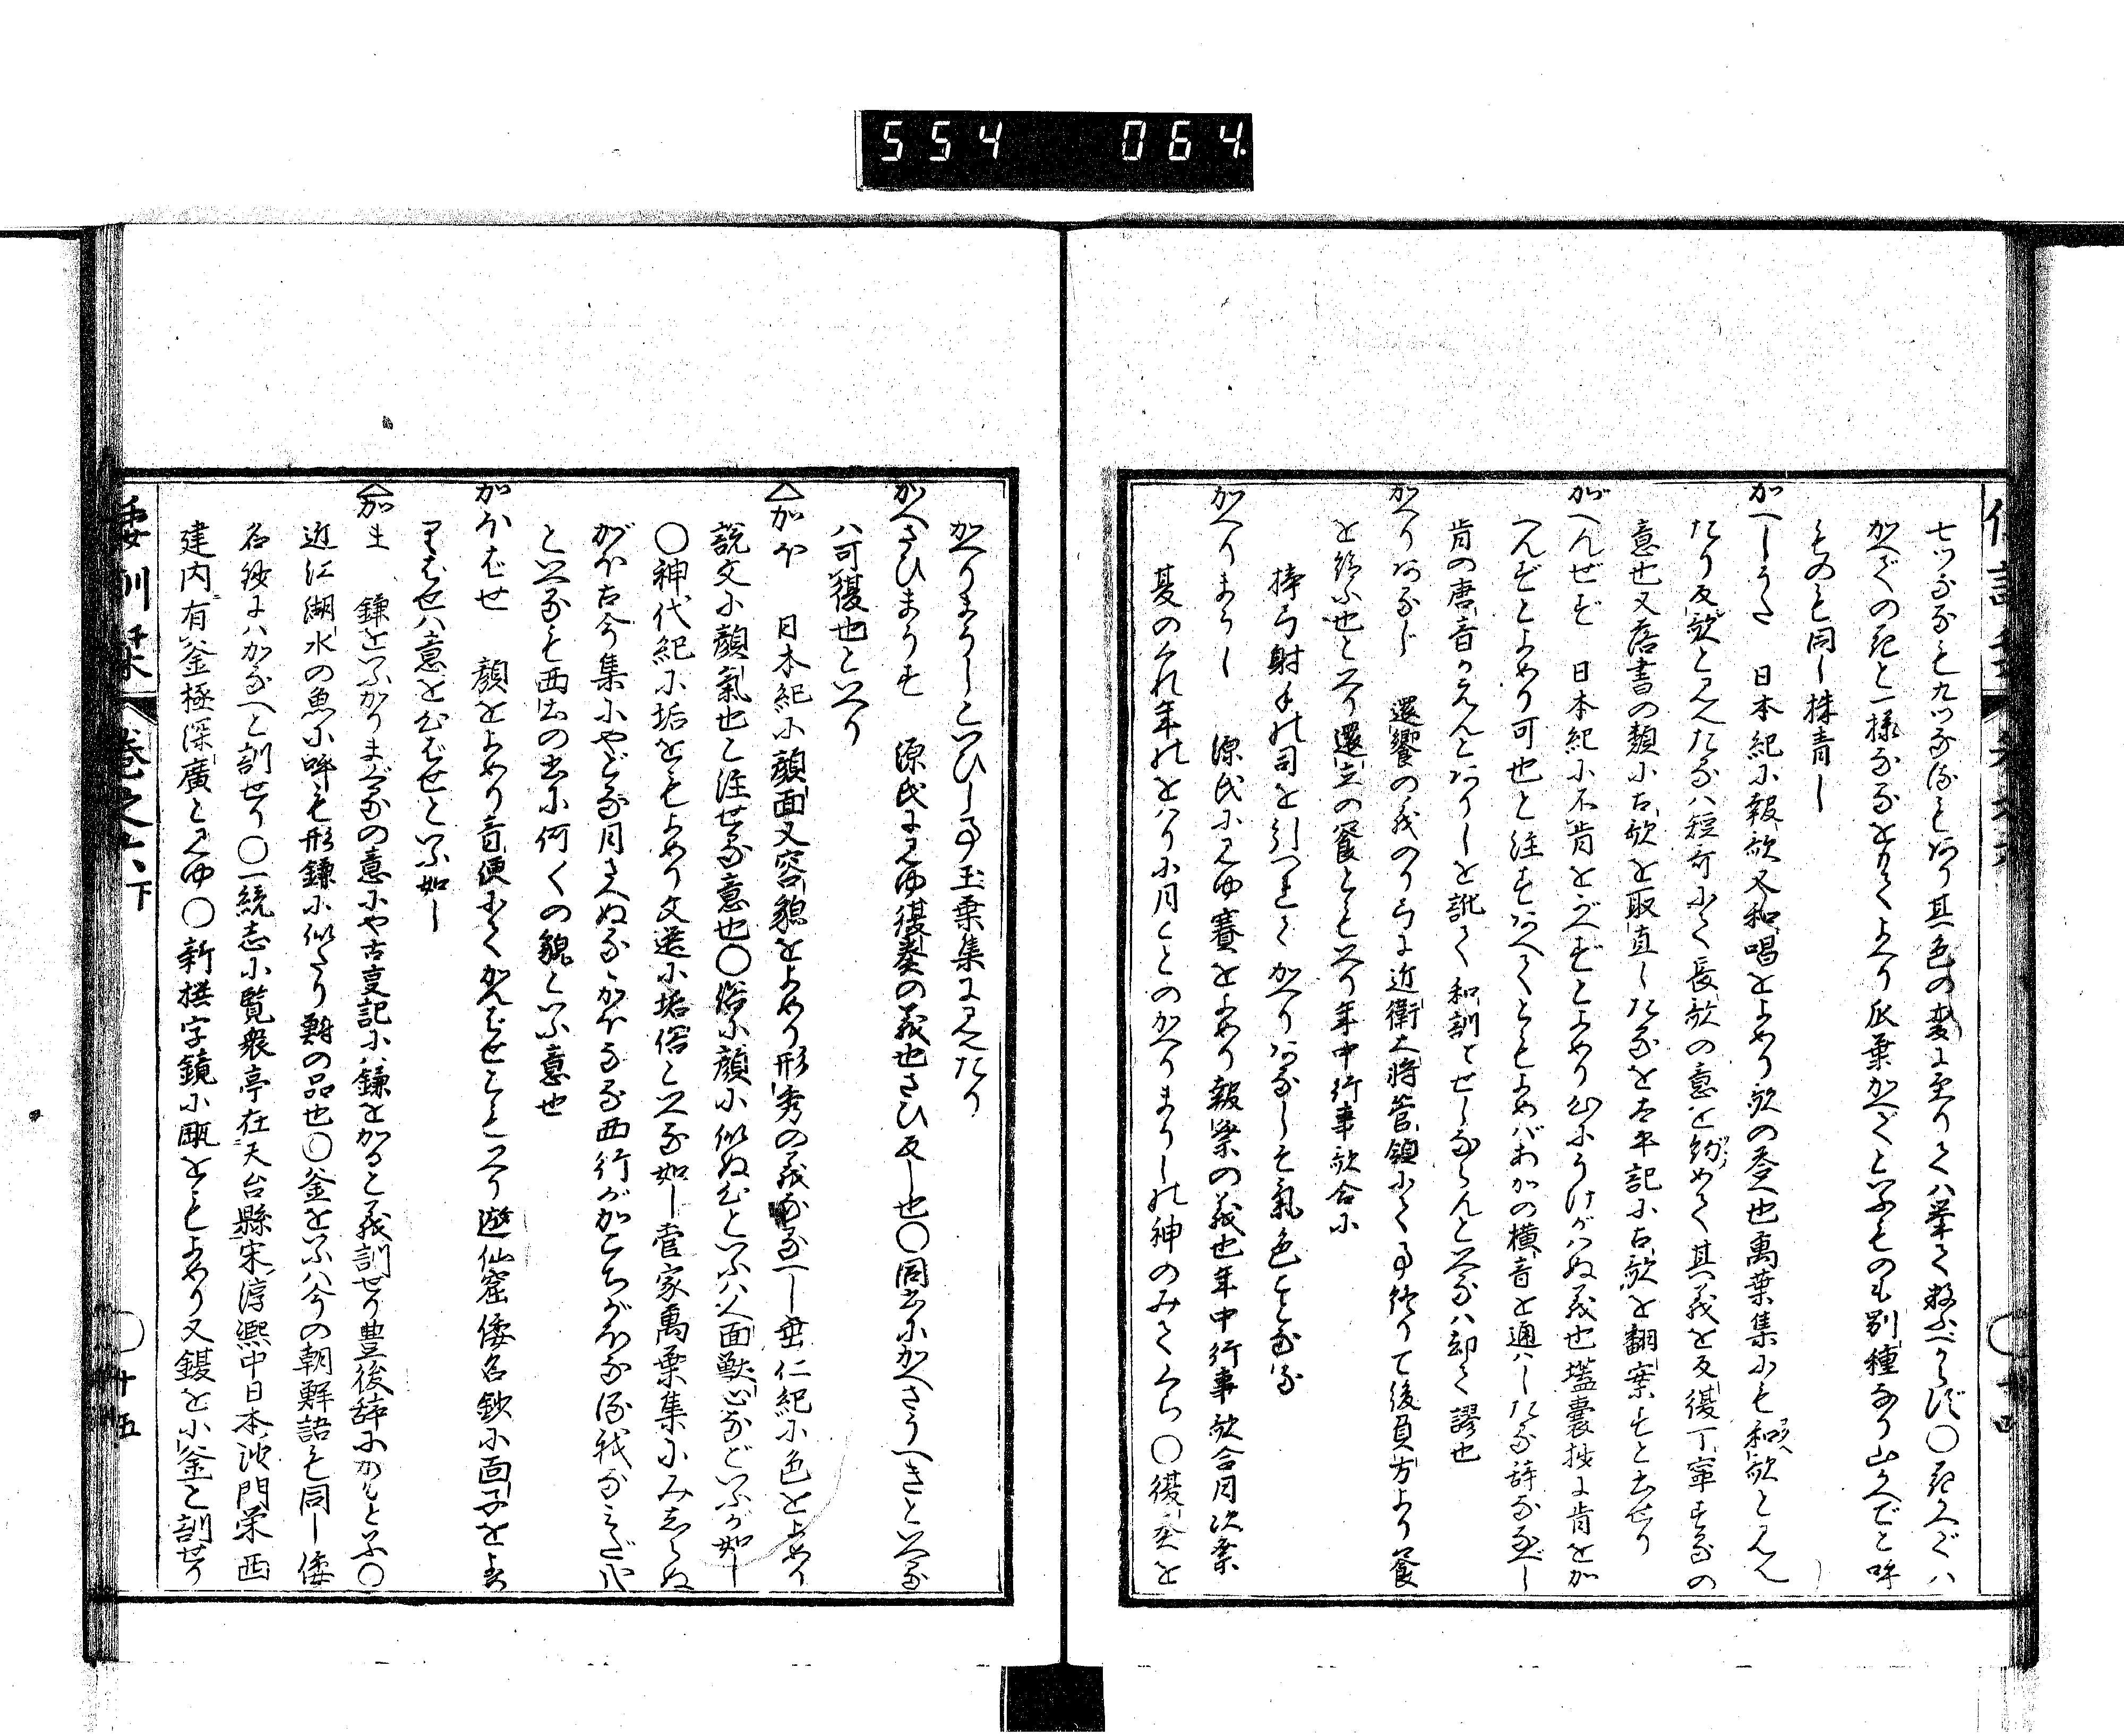 554 064
七ツなるも九ツなるもあり其色の変に至りては挙て数ふべからず○花かへでハ
かへでの花と一様なるをもてよべり瓜葉かへでといふもの別種なり山かへでと呼
ものも同し株青し
かへしうた 日本紀に報歌又和唱をよめり歌の答へ也萬葉集にも和歌と見え
たり反歌と見えたるハ短哥にて長歌の意を約めて其義を反復丁寧するの
意也又落書の類に古歌を取直したるを太平記に古歌を翻案すと書せり
がへんぜず 日本紀に不肯をがへずとよめり心にうけがハぬ義也壒嚢抄に肯を加
へんずとよめり可也と注すあへてともよめバあかの横音を通ハしたる詩なるべし
肯の唐音かえんとありしを訛て和訓とせしならんといへるハ却て謬也
かへりあるじ 還饗の義のり弓に近衛大将管領にて事終りて後負方より饗
を給ふ也といへり還立の饗ともいへり年中行事歌合に
梓弓射手の司を引つれてかへりあるじそ氣色ことなる
かへりまうし 源氏に見ゆ賽をよめり報祭の義也年中行事歌合月次祭
夏のくれ年のをハりに月ことのかへりまうしの神のみてくら ○復奏を
かへりまうしといひし事玉葉集に見えたり
かへさひまうす 源氏に見ゆ復奏の義也さひ反し也○同書にかへさうへきといへる
ハ可復也といへり
△加ほ 日本紀に顔面又容貌をよめり形秀の義なるへし垂仁紀に色をよめり
説文に顔氣也と注せる意也○俗に顔に似ぬ心といふハ人面獣心などいふが如し
○神代紀に垢をもよめり文選に垢俗といへる如し菅家萬葉集にみえぬ
がほ古今集にやどる月さへぬるゝがほなる西行がかこちがほなる我なミだ也
といへるも西土の書に何くの貌といふ意也
加ほばせ 顔をよめり音便にてかんばせともいへり遊仙窟倭名鈔に面子をよむ
はせハ意を心ばせといふ如し
△加ま 鎌をいふかりまぐるの意にや古事記にハ鎌をかると義訓せり豊後辞にかまといふ○
近江湖水の魚に呼も形鎌に似たり鱒の品也○釜をいふハ今の朝鮮語も同し倭
名鈔にハかなへと訓せり○一統志に覧衆亭在天台縣宋淳熙中日本沙門栄西
建内有釜極深廣と見ゆ○新撰字鏡に甌をもよめり又鍑を小釜と訓せり
倭訓栞 巻之六下 十五